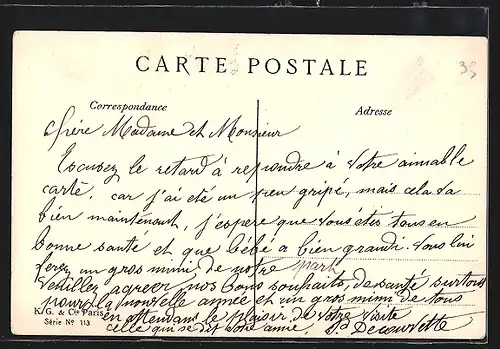 CARTE POSTALE
35
Correspondance
Adresse
Chère Madame et Monsieur
Excusez le retard à repondre à votre aimable
carte, car j'ai été un peu gripé, mais cela va
bien maintenant, j'espere que vous êtes tous en
bonne santé et que bébé a bien grandi. Vous lui
ferez un gros mimi de notre part
Veuillez agreer nos bons souhaits, de santé surtout
pour la nouvelle année et un gros mimi de tous
en attendant le plaisir de votre visite
celle qui se dit votre amie,
K/G. & Cie Paris
Série No 113